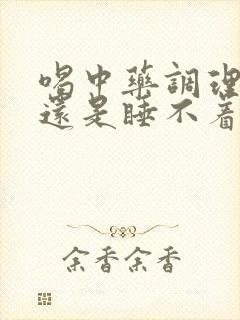 喝中藥調理
還是睡不着
余香余香